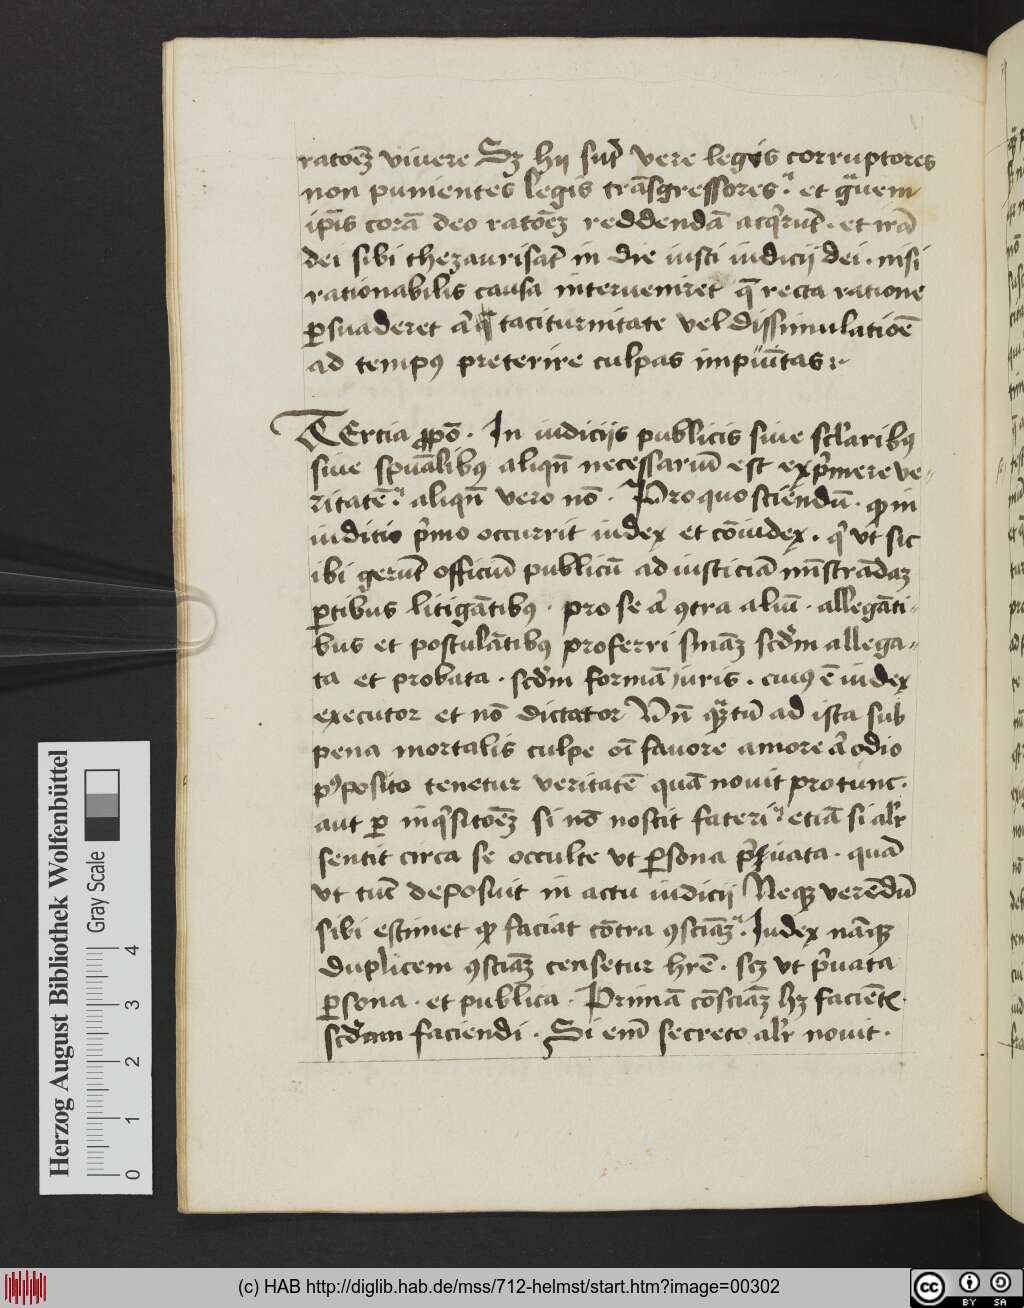 ratōeꝫ viuere Sꝫ hij sūt vere legis corruptores
non punientes legis trāsgressores. et gͣuem
ip̄is corā deo ratōeꝫ reddendā acq̇rūt. et irā
dei sibi thezaurisāt in die iusti iudicij dei. nisi
rationabilis causa interueniret q̄ recta ratione
ꝑsuaderet taciturnitate vel dissimulatiōe
ad tempꝰ preterire culpas impūitas
TErcia ꝓpō. In iudicijs publicis siue sc̄laribꝰ
siue sp̄uālibꝰ aliqn̄ necessariū est exp̄mere ve-
ritatē. aliqn̄ vero nō. Pro quo sciendū. ꝙ in
iudicio p̄mo occurrit iudex et cōiudex. qͥ vt sic
ibi gerūt officiū publicū ad iusticiā mīstrādaꝫ
ꝑtibus litigātibꝰ. pro se aͥ ꝯtra aliū. allegāti-
bus et postulātibꝰ proferri sniaꝫ scd̄m allega-
ta et probata. scd̄m formā iuris. cuiꝰ ē iudex
executor et nō dictator Vn̄ qͣꝫtū ad ista sub
pena mortalis culpe oī fauore amore aͥ odio
pꝰposito tenetur veritatē quā nouit pro tunc.
aut ꝑ inq̇sitōeꝫ si nō noscit fateri. etiā si alr̄
sentit circa se occulte vt ꝑsona p̄uata. quā
vt tūc deposuit in actu iudicij Neqꝫ verēdū
sibi estimet ꝙ faciat cōtra ꝯsciāꝫ. Iudex nāqꝫ
duplicem ꝯsciāꝫ censetur hr̄e. scꝫ vt p̄uata
ꝑsona. et publica. Primā cōsciāꝫ hꝫ faciēt.
scd̄am faciendi. Si enī secreto alr̄ nouit.
Herzog August Bibliothek Wolfenbüttel
Gray Scale
0 1 2 3 4
(c) HAB http://diglib.hab.de/mss/712-helmst/start.htm?image=00302
cc BY SA